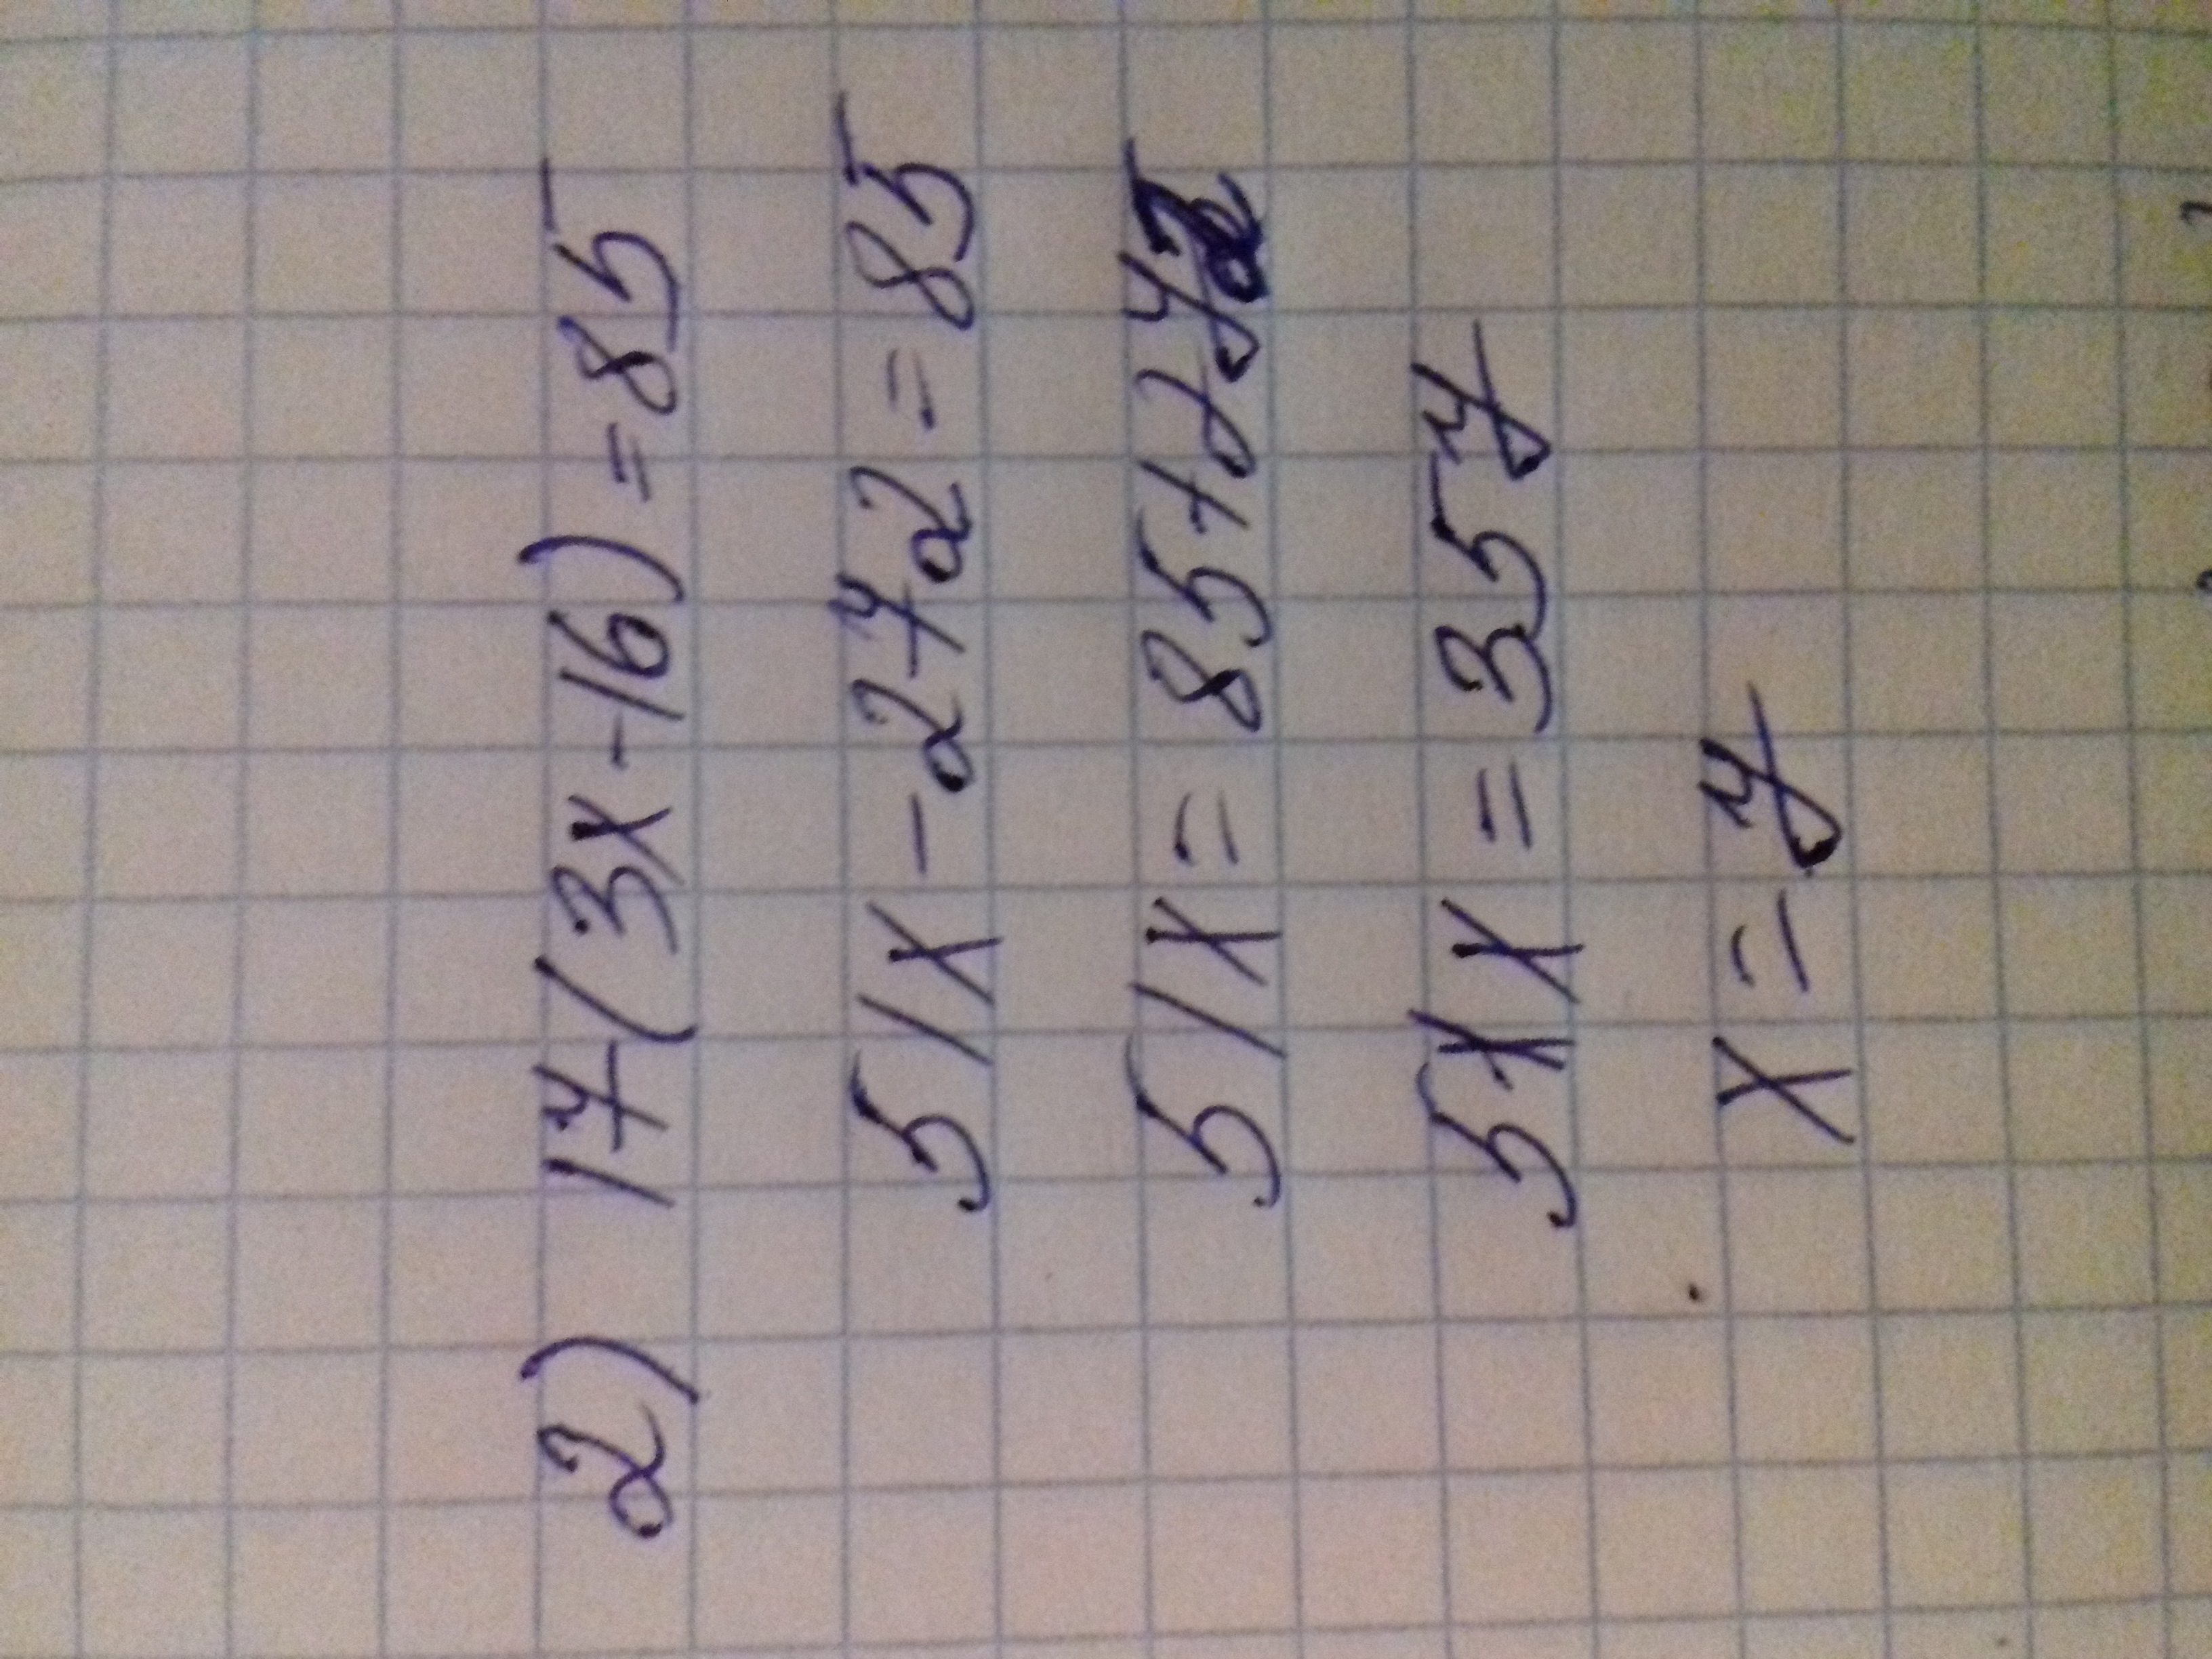 2) 17(3x-16)=85
51x-272=85
51x=85+272
51x=357
x=7